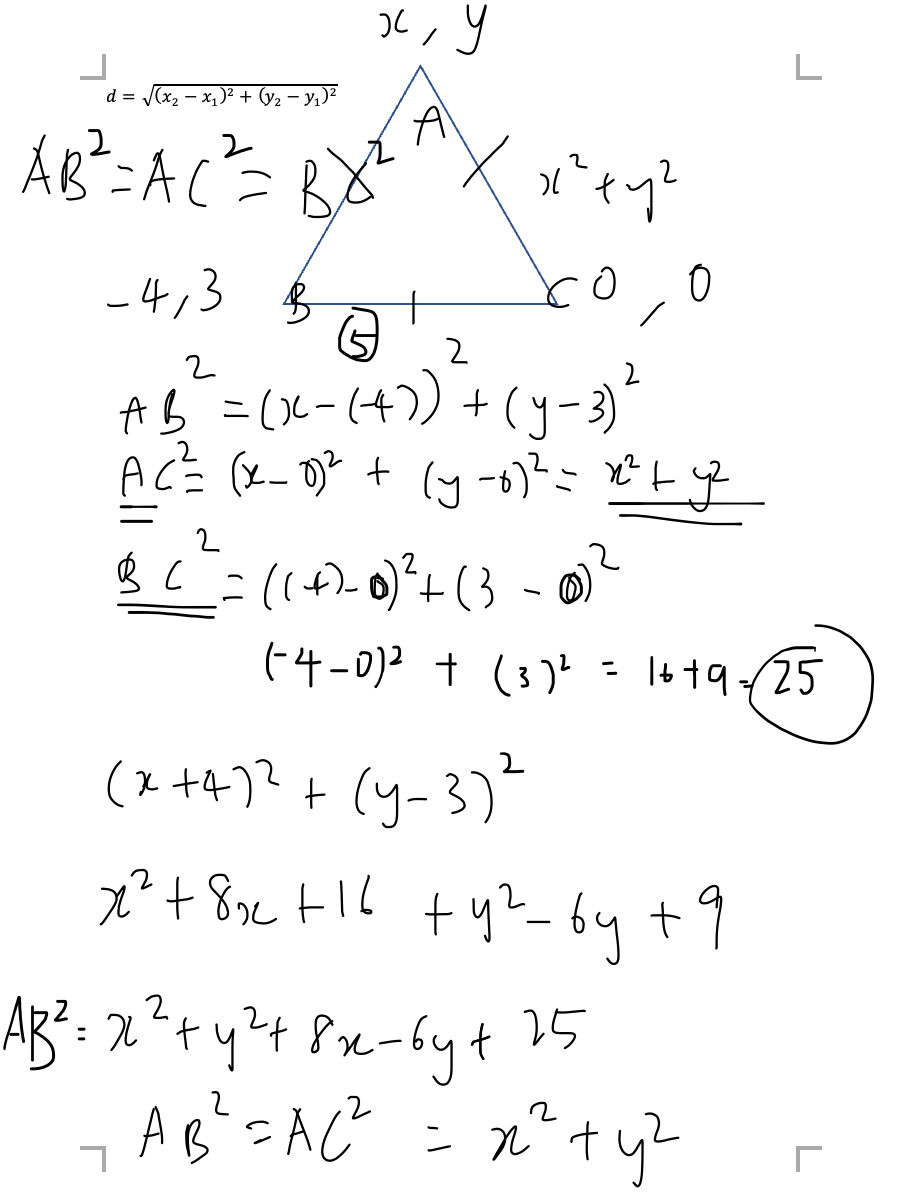 x, y
d = √(x₂ − x₁)² + (y₂ − y₁)²
A
AB² = AC² = BC²
x² + y²
-4, 3
B
C 0, 0
5
AB² = (x-(-4))² + (y-3)²
AC² = (x-0)² + (y-0)² = x² + y²
BC² = ((-4)-0)² + (3 - 0)²
(-4-0)² + (3)² = 16+9 = 25
(x+4)² + (y-3)²
x² + 8x + 16 + y² - 6y + 9
AB² = x² + y² + 8x - 6y + 25
AB² = AC² = x² + y²